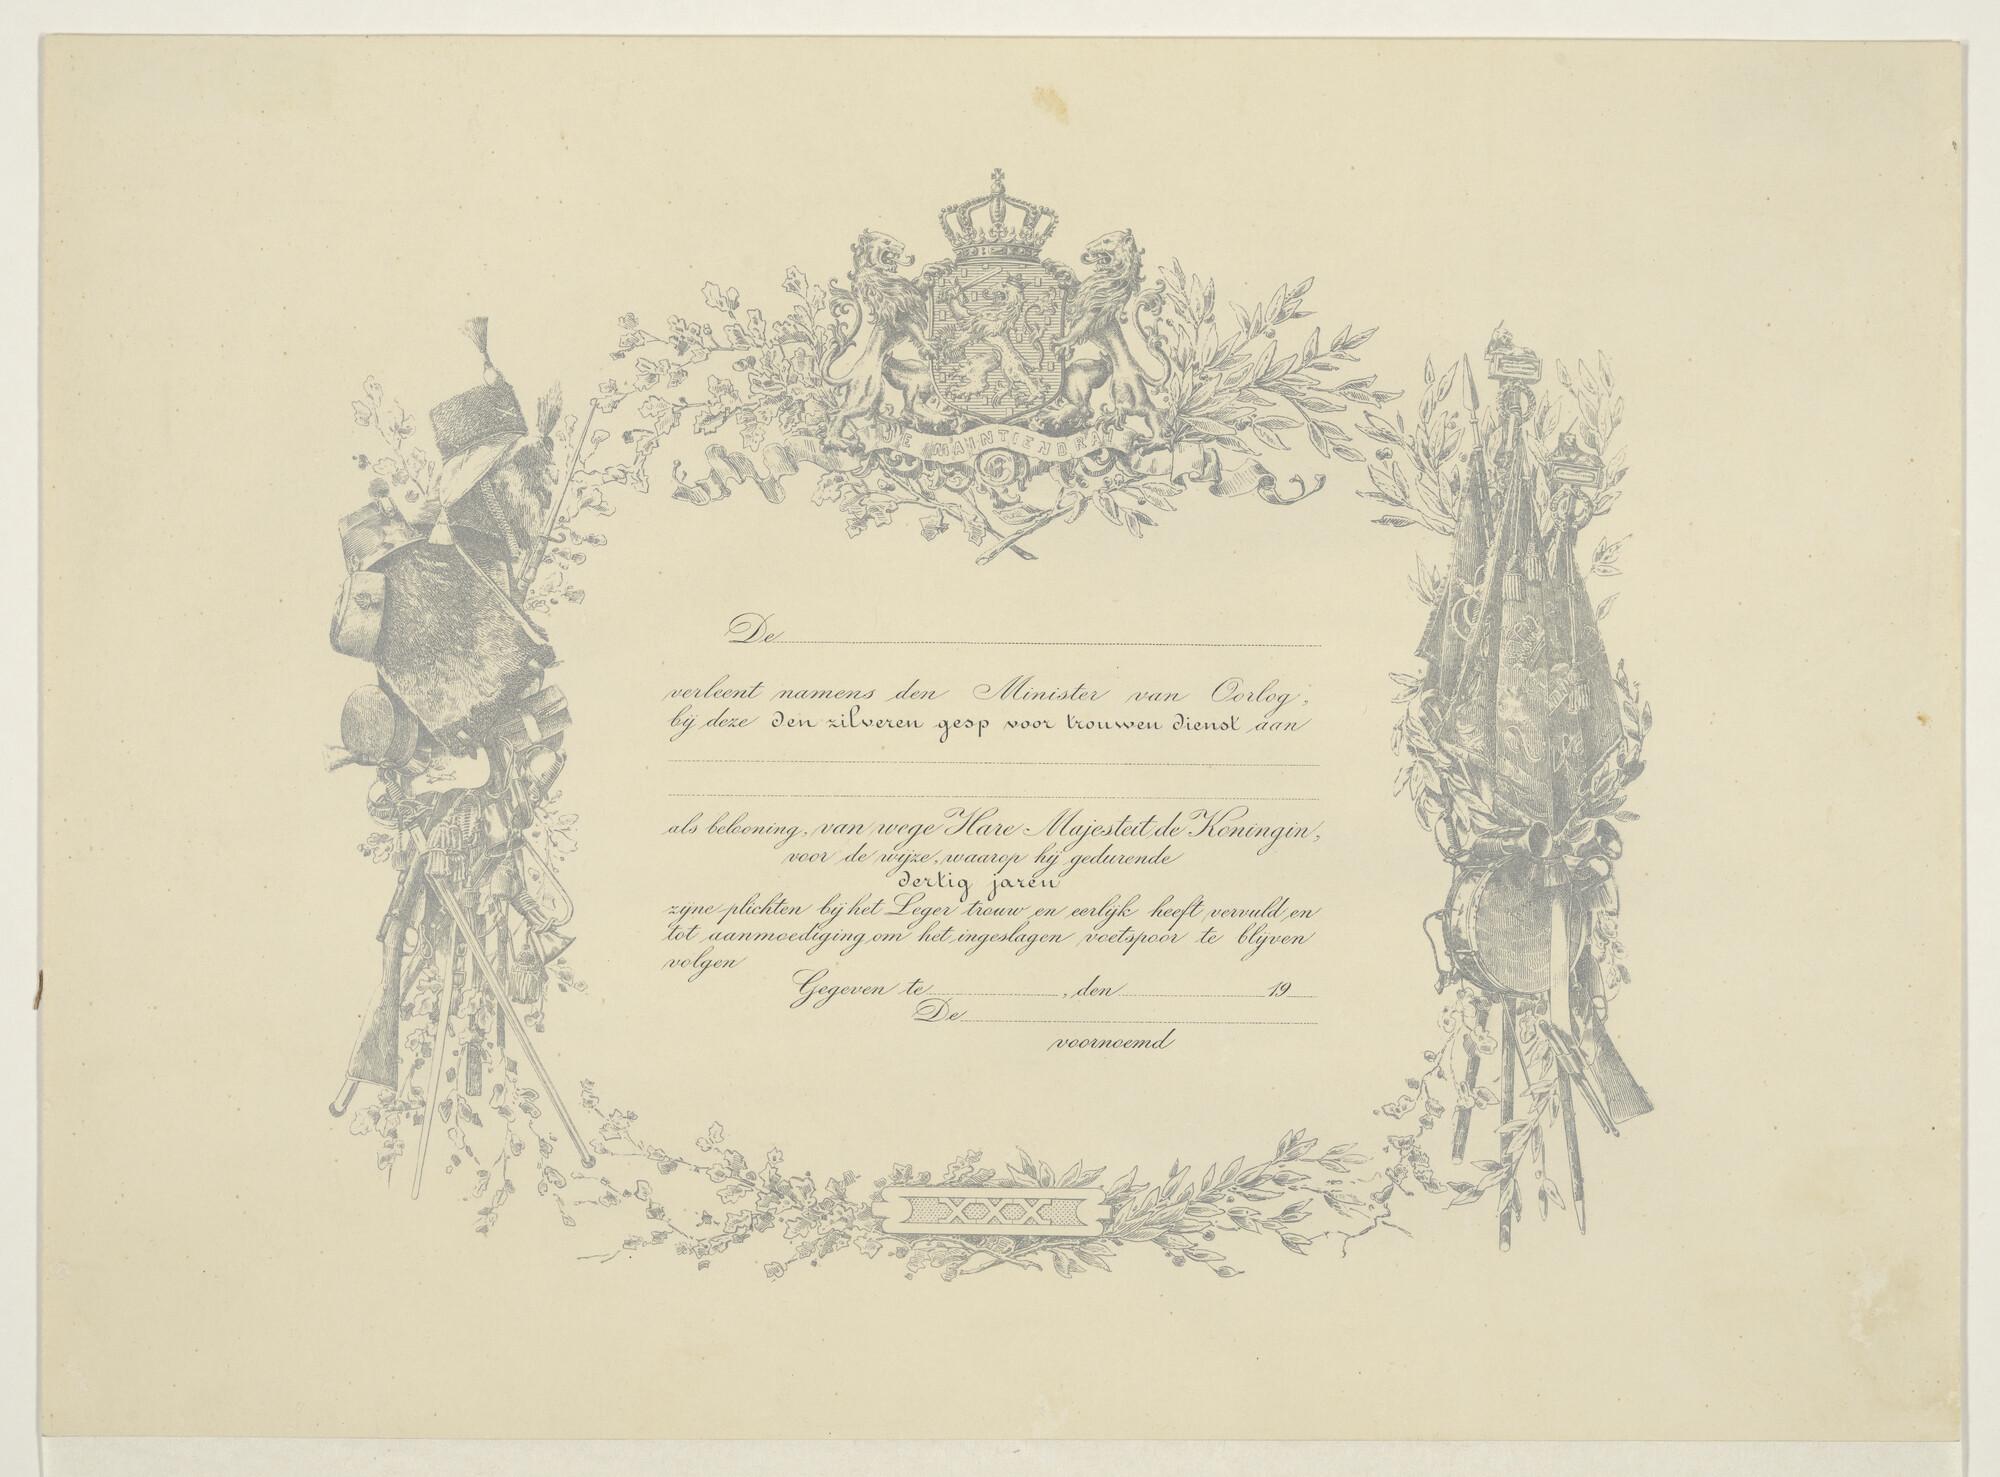 JE MAINTIENDRAI
De
verleent namens den Minister van Oorlog,
bij deze den zilveren gesp voor trouwen dienst aan
als belooning, van wege Hare Majesteit de Koningin,
voor de wijze, waarop hij gedurende
dertig jaren
zijne plichten bij het Leger trouw en eerlijk heeft vervuld en
tot aanmoediging om het ingeslagen voetspoor te blijven
volgen
Gegeven te , den 19
De
voornoemd
XXX